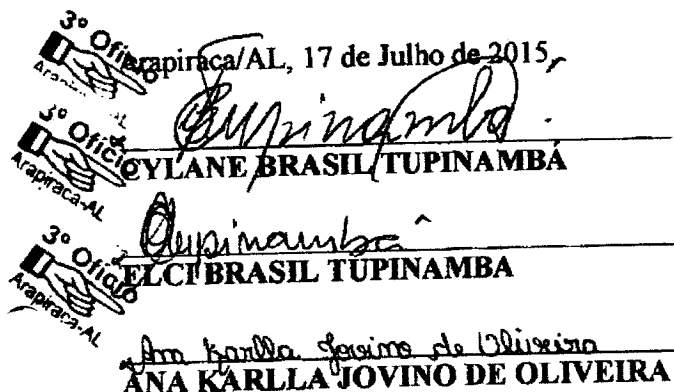 3º Ofício
Arapiraca-AL
Arapiraca/AL, 17 de Julho de 2015,
Tupinambá.
3º Ofício
Arapiraca-AL
CYLANE BRASIL TUPINAMBÁ
Tupinambá
3º Ofício
Arapiraca-AL
ELCI BRASIL TUPINAMBA
Ana Karlla Jovino de Oliveira
ANA KARLLA JOVINO DE OLIVEIRA